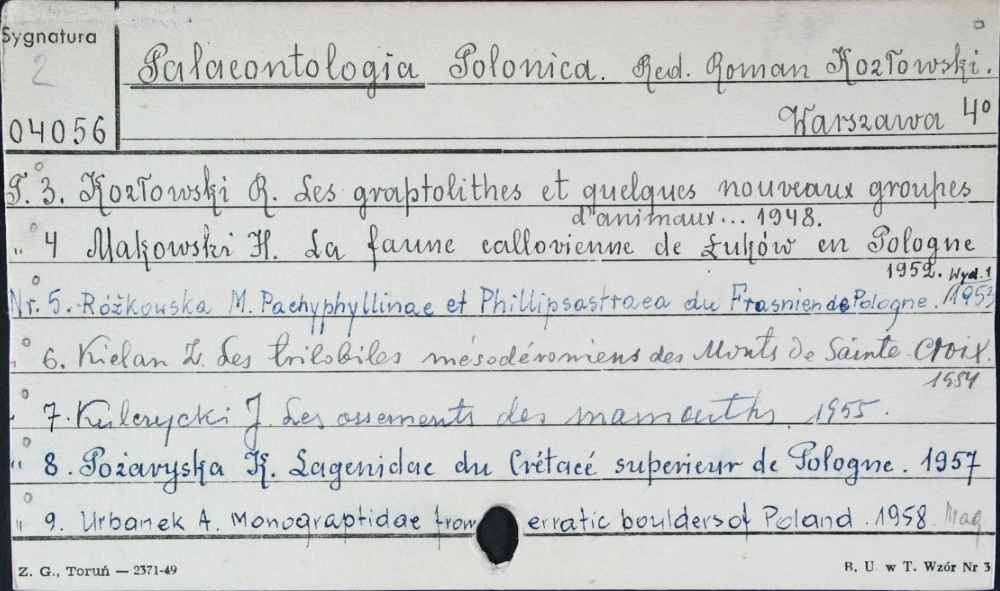 Sygnatura
2
04056
Palaeontologia Polonica. Red. Roman Kozłowski.
Warszawa 4º
T. 3. Kozłowski R. Les graptolithes et quelques nouveaux groupes
d'animaux... 1948.
„ 4 Makowski H. La faune callovienne de Łuków en Pologne
1952. Wyd. 1
Nr. 5. Różkowska M. Pachyphyllinae et Phillipsastraea du Frasnien de Pologne. 1953
„ 6. Kielan Z. Les trilobites mésodévoniens des Monts de Sainte-Croix.
1954
„ 7. Kulczycki J. Les ossements des mamouths. 1955.
„ 8. Pożaryska K. Lagenidae du Crétacé superieur de Pologne. 1957
„ 9. Urbanek A. Monograptidae from erratic boulders of Poland. 1958. Mag
Z. G., Toruń — 2371-49
B. U. w T. Wzór Nr 3